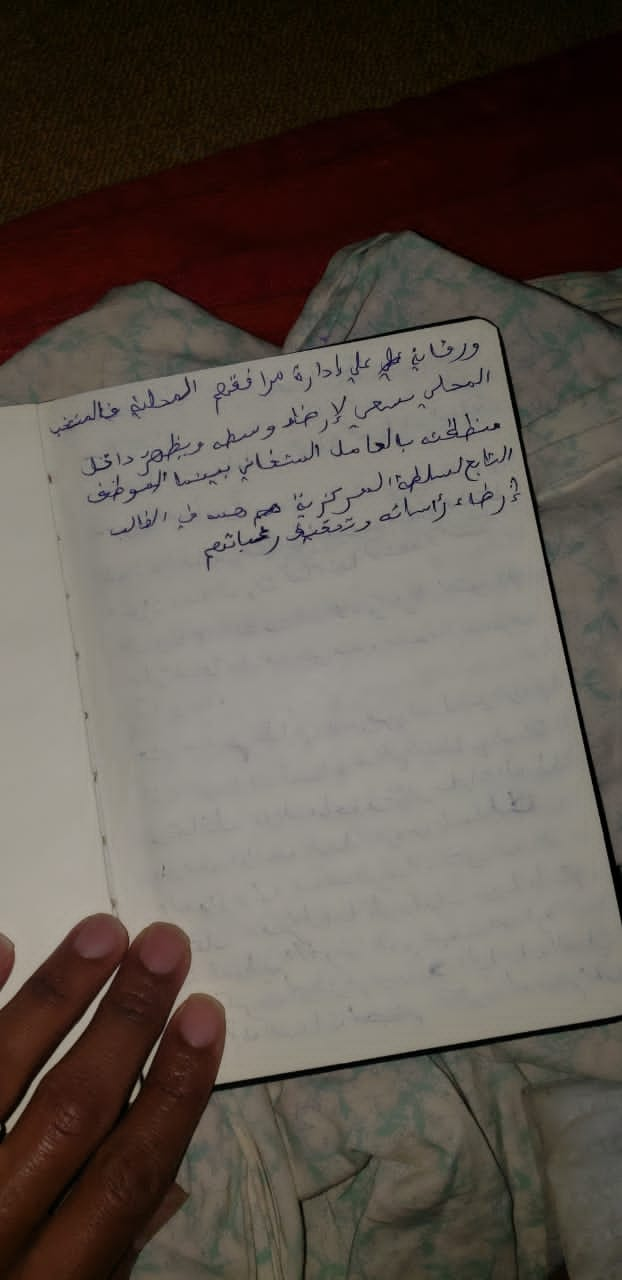 ورقابة علي إدارة مرافقهم المحلية فالمنتخب
المحلي يسعي لإرضاء وسطه ويظهر داخل
منطقته بالعامل المتفاني بينما الموظف
التابع لسلطة المركزية همه في الغالب
إرضاء رأسائه وتنفيذ رغباتهم